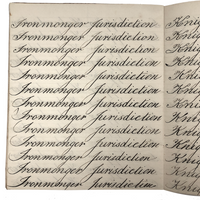 Ironmonger Jurisdiction
Ironmonger Jurisdiction
Ironmonger Jurisdiction
Ironmonger Jurisdiction
Ironmonger Jurisdiction
Ironmonger Jurisdiction
Ironmonger Jurisdiction
Ironmonger Jurisdiction
Ironmonger Jurisdiction
Ironmonger Jurisdiction
Ironmonger Jurisdiction
Ironmonger Jurisdiction